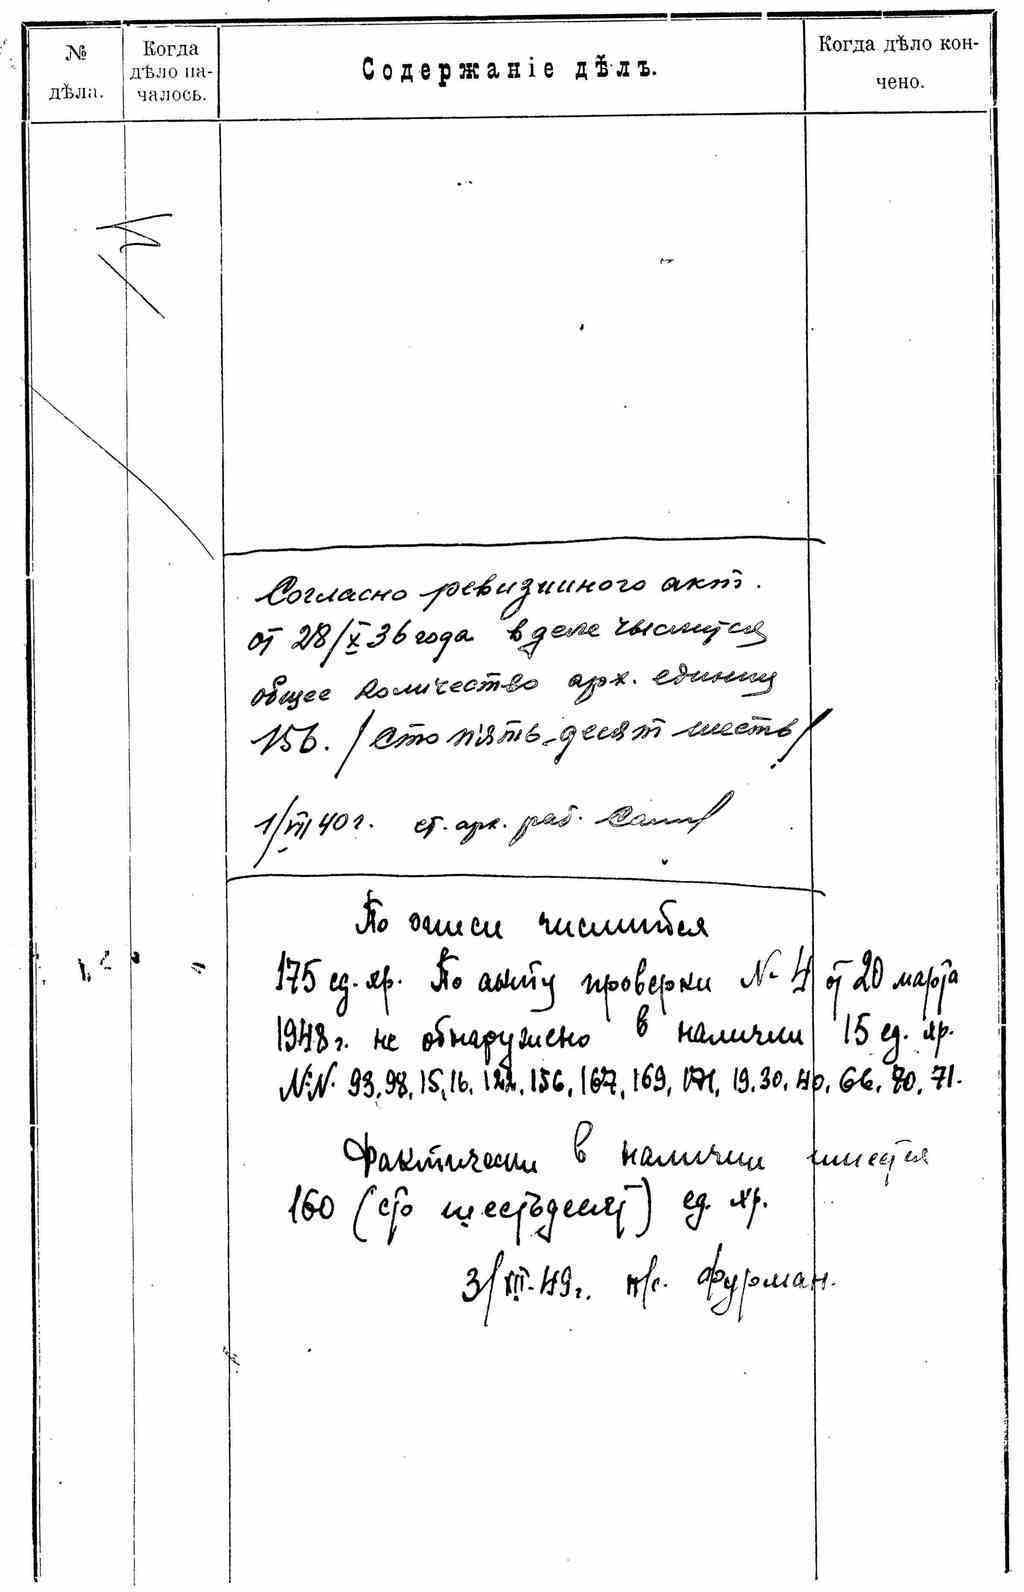 № дѣла.
Когда дѣло на-
чалось.
Содержаніе дѣлъ.
Когда дѣло кон-
чено.
Согласно ревизийного акт.
от 28/X 36 года в деле числится
общее количество арх. единиц
156. /сто пять-десят шесть/
1/VII 40 г. ст. арх. раб.
По описи числится
175 ед. хр. По акту проверки № 4 от 20 марта
1948 г. не обнаружено в наличии 15 ед. хр.
№№ 93, 98, 15, 16, 122, 156, 167, 169, 171, 19, 30, 40, 66, 70, 71.
Фактически в наличии имеется
160 (сто шестьдесят) ед. хр.
3/XII-49 г. н/с. Фурман.